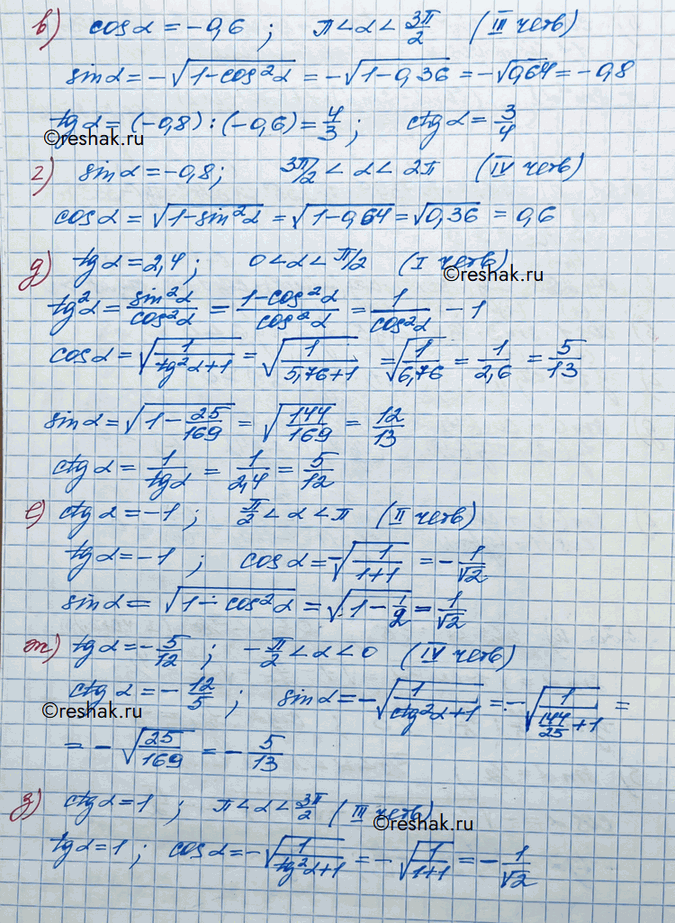 в) cosα = -0,6 ; π < α < 3π/2 (III четв)
sinα = -√(1-cos²α) = -√(1-0,36) = -√0,64 = -0,8
tgα = (-0,8) : (-0,6) = 4/3 ; ctgα = 3/4
©reshak.ru
г) sinα = -0,8 ; 3π/2 < α < 2π (IV четв)
cosα = √(1-sin²α) = √(1-0,64) = √0,36 = 0,6
д) tgα = 2,4 ; 0 < α < π/2 (I четв)
©reshak.ru
tg²α = sin²α/cos²α = (1-cos²α)/cos²α = 1/cos²α - 1
cosα = √(1/(tg²α+1)) = √(1/(5,76+1)) = √(1/6,76) = 1/2,6 = 5/13
sinα = √(1 - 25/169) = √(144/169) = 12/13
ctgα = 1/tgα = 1/2,4 = 5/12
е) ctgα = -1 ; π/2 < α < π (II четв)
tgα = -1 ; cosα = -√(1/(1+1)) = -1/√2
sinα = √(1-cos²α) = √(1-1/2) = 1/√2
ж) tgα = -5/12 ; -π/2 < α < 0 (IV четв)
ctgα = -12/5 ; sinα = -√(1/(ctg²α+1)) = -√(1/(144/25+1)) =
©reshak.ru
= -√(25/169) = -5/13
з) ctgα = 1 ; π < α < 3π/2 (III четв)
©reshak.ru
tgα = 1 ; cosα = -√(1/(tg²α+1)) = -√(1/(1+1)) = -1/√2